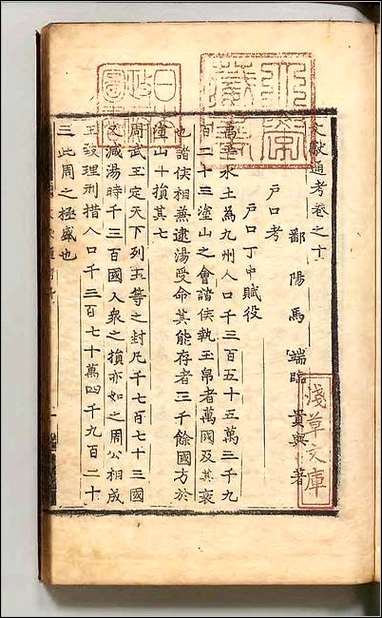 文獻通考卷之十
鄱陽馬端臨貴與著
戶口考
戶口丁中賦役
禹平水土為九州人口千三百五十五萬三千九
百二十三塗山之會諸侯執玉帛者萬國及其衰
也諸侯相兼逮湯受命其能存者三千餘國方於
塗山十損其七
周武王定天下列五等之封凡千七百七十三國
又減湯時千三百國人衆之損亦如之周公相成
王致理刑措人口千三百七十萬四千九百二十
三此周之極盛也
淺草文庫